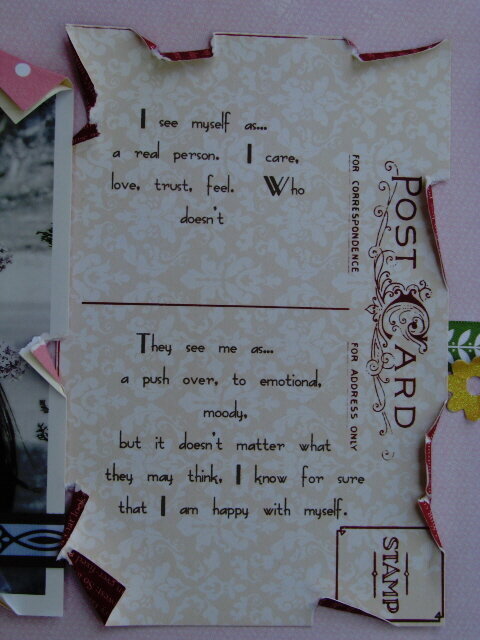 I see myself as...
a real person. I care,
love, trust, feel. Who
doesn't
They see me as...
a push over, to emotional,
moody,
but it doesn't matter what
they may think, I know for sure
that I am happy with myself.
FOR CORRESPONDENCE
FOR ADDRESS ONLY
POST CARD
STAMP